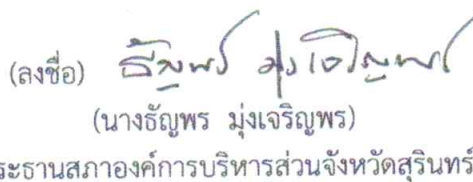 (ลงชื่อ) ธัญพร มุ่งเจริญพร
(นางธัญพร มุ่งเจริญพร)
ระธานสภาองค์การบริหารส่วนจังหวัดสุรินทร์